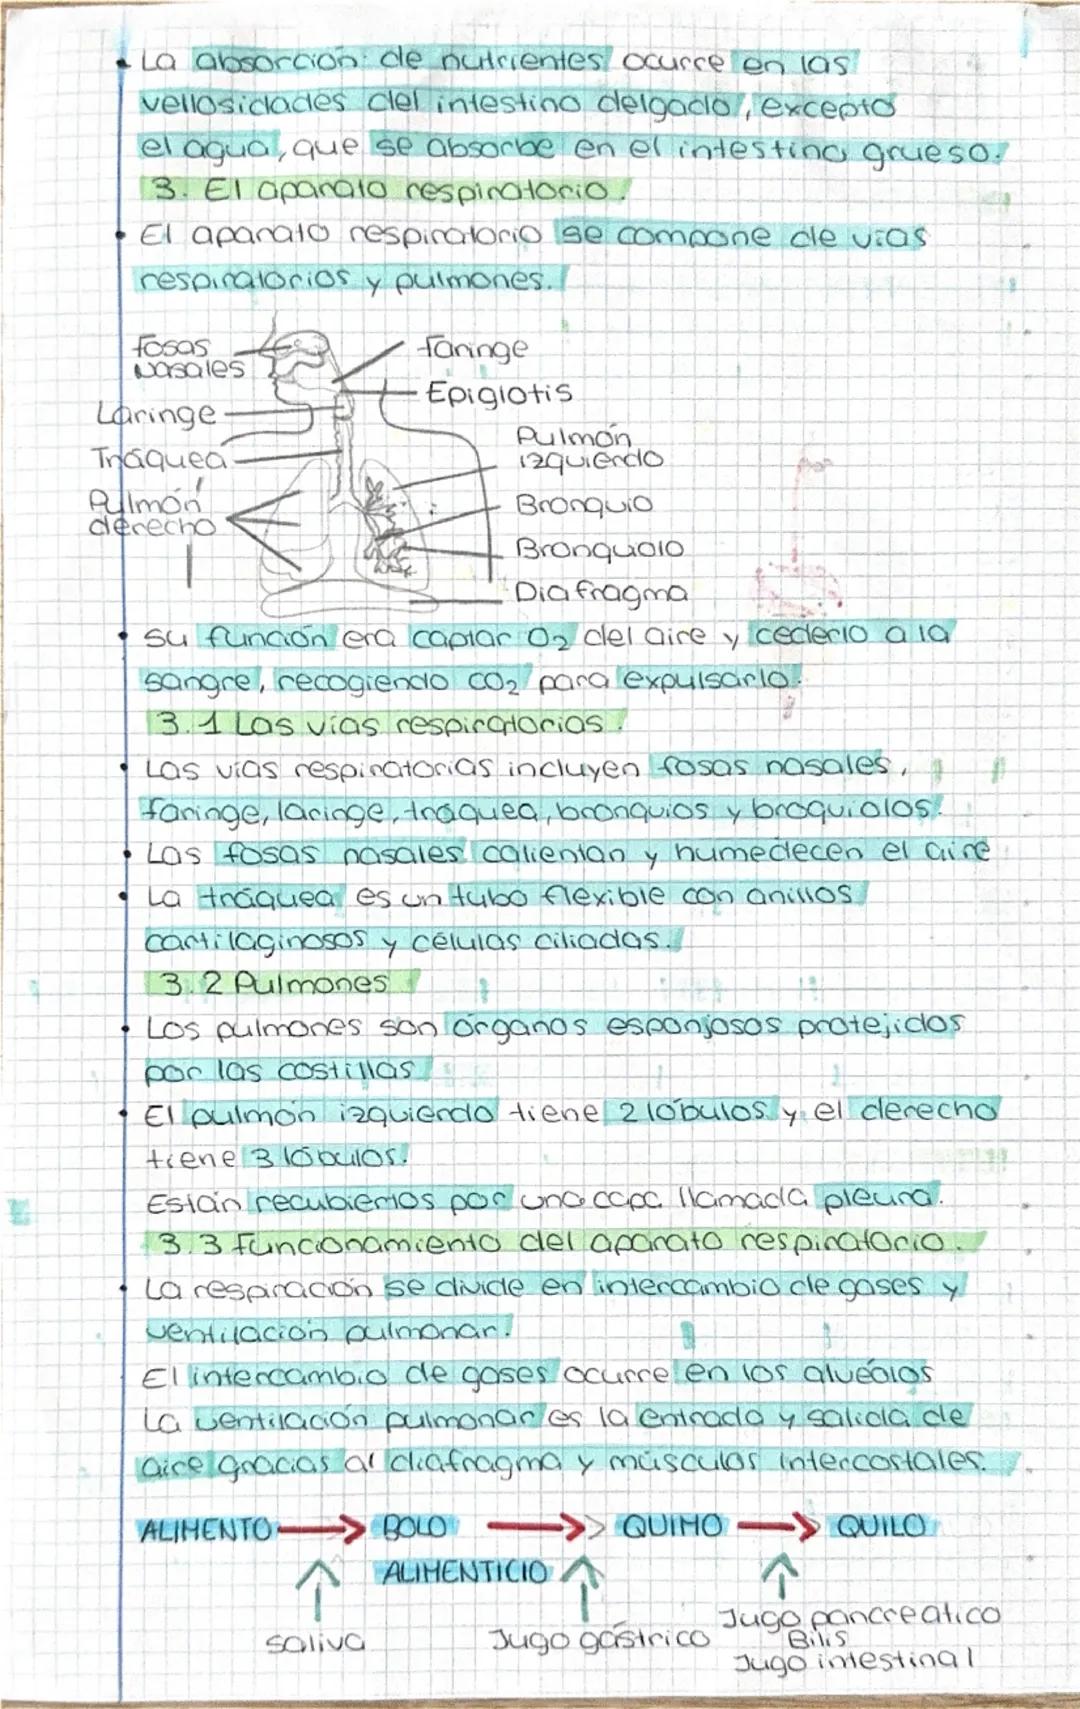 La absorción de nutrientes ocurre en las
vellosidades del intestino delgado, excepto
el agua, que se absorbe en el intestino grueso.
3. El aparato respiratorio.
El aparato respiratorio se compone de vías
respiratorios y pulmones.
fosas
nasales
faringe
Epiglotis
Laringe
Pulmón
izquierdo
Tráquea
Pulmón
derecho
Bronquio
Bronquolo
Diafragma
Su función era captar O2 del aire y cederlo a la
sangre, recogiendo CO2 para expulsarlo.
3.1 Las vías respiratorias.
Las vías respiratorias incluyen fosas nasales,
faringe, laringe, tráquea, bronquios y broquiolos.
Las fosas nasales calientan y humedecen el aire
La tráquea es un tubo flexible con anillos
cartilaginosos y células ciliadas.
3.2 Pulmones
Los pulmones son órganos esponjosos protejidos
por las costillas
El pulmón izquierdo tiene 2 lóbulos y el derecho
tiene 3 lóbulos.
Están recubiertos por una capa llamada pleura.
3.3 funcionamiento del aparato respiratorio.
La respiración se divide en intercambio de gases y
ventilación pulmonar.
El intercambio de gases ocurre en los alvéolos
La ventilación pulmonar es la entrada y salida de
aire gracias al diafragma y músculos intercostales.
ALIMENTO → BOLO → QUIMO → QUILO
ALIMENTICIO
saliva
Jugo gástrico
Jugo pancreatico
Bilis
Jugo intestinal